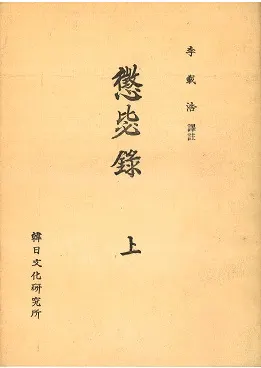 李載浩 譯註
懲毖錄
上
韓日文化硏究所